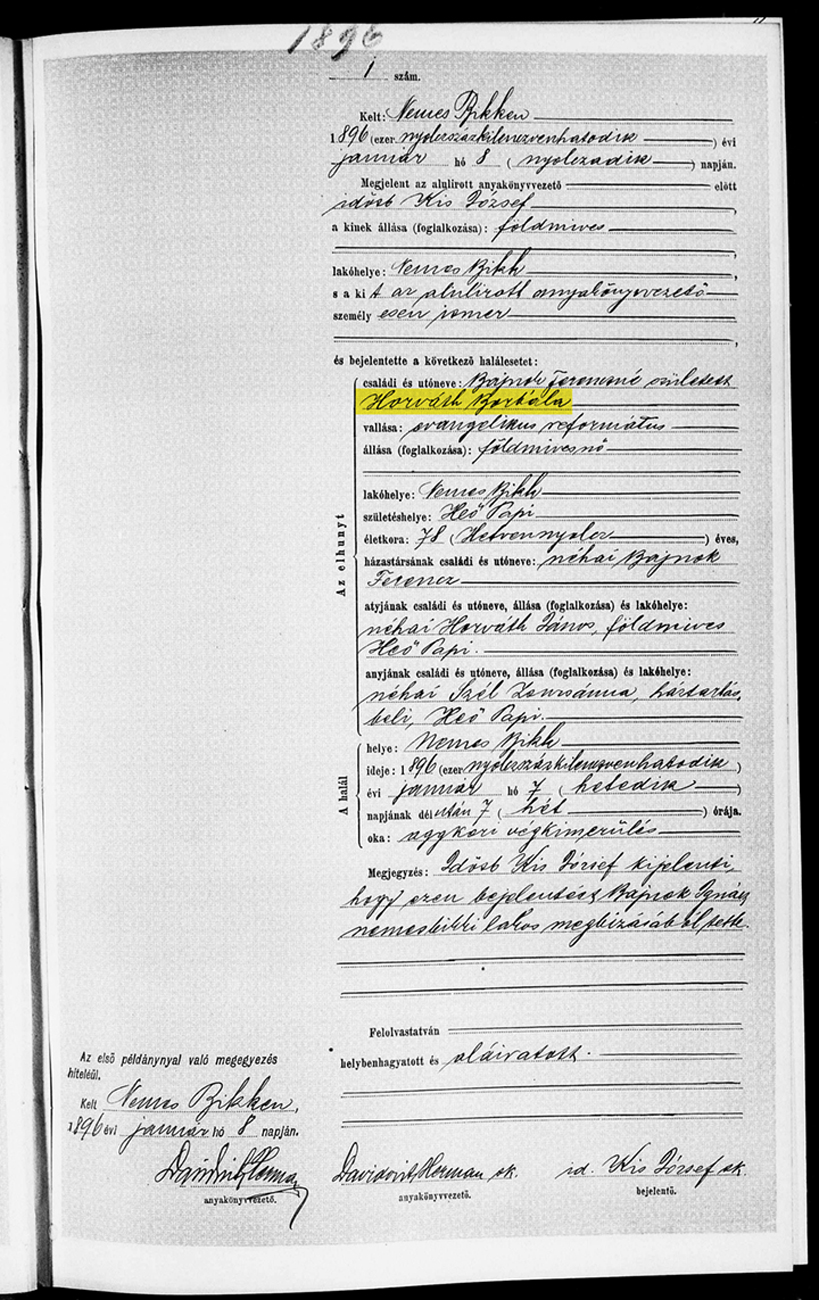 1896
1 szám.
Kelt: Nemes Bikken
1896 (ezer nyolczszázkilenczvenhatodik ) évi
január hó 8 ( nyolczadik ) napján.
Megjelent az alulirott anyakönyvvezető előtt
idősb Kis József,
a kinek állása (foglalkozása): földmives
lakóhelye: Nemes Bikk,
s a kit az alulirott anyakönyvvezető
személyesen ismer,
és bejelentette a következő halálesetet:
Az elhunyt
családi és utóneve: Bajnok Ferenczné született
Horváth Borbála
vallása: evangelikus református
állása (foglalkozása): földmivesnő
lakóhelye: Nemes Bikk
születéshelye: Heő Papi
életkora: 78 ( Hetvennyolcz ) éves,
házastársának családi és utóneve: néhai Bajnok
Ferencz
atyjának családi és utóneve, állása (foglalkozása) és lakóhelye:
néhai Horváth János, földmives
Heő Papi.
anyjának családi és utóneve, állása (foglalkozása) és lakóhelye:
néhai Szél Zsuzsánna, háztartás
beli, Heő Papi.
A halál
helye: Nemes Bikk
ideje: 1896 (ezer nyolczszázkilenczvenhatodik )
évi január hó 7 ( hetedik )
napjának délután 7 ( hét ) órája.
oka: aggkori végkimerülés
Megjegyzés: Idősb Kis József kijelenti,
hogy ezen bejelentést Bajnok Ignácz
nemesbikki lakos megbizásából tette.
Felolvastatván
helybenhagyatott és aláiratott.
Az első példánynyal való megegyezés
hiteléül.
Kelt Nemes Bikken,
1896 évi január hó 8 napján.
Davidovits Herman
anyakönyvvezető.
Davidovits Herman sk.
anyakönyvvezető.
id. Kis József sk.
bejelentő.